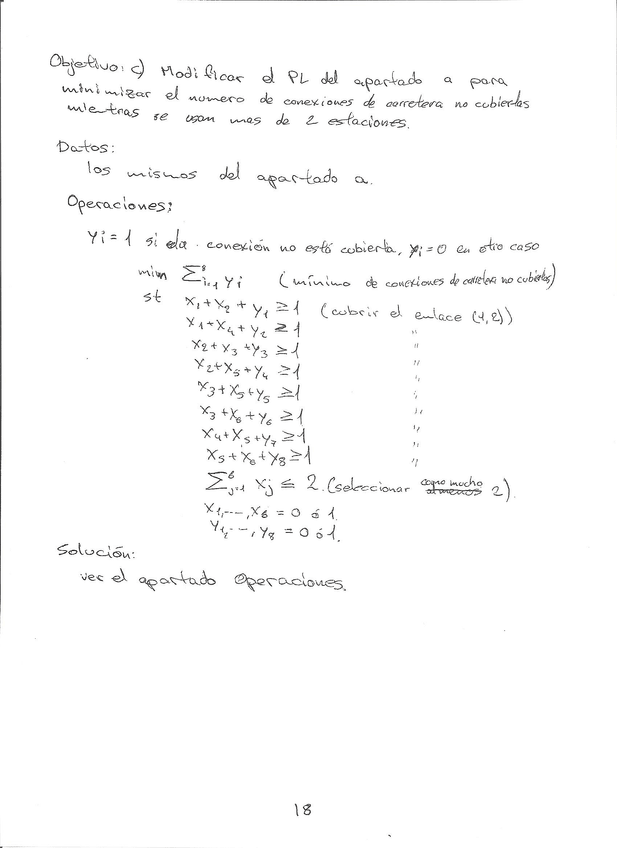 Objetivo: c) Modificar el PL del apartado a para
minimizar el numero de conexiones de carretera no cubiertas
mientras se usan mas de 2 estaciones.
Datos:
los mismos del apartado a.
Operaciones:
Yi = 1 si cda. conexión no está cubierta, yi = 0 en otro caso
mim ∑⁸ᵢ₌₁ Yi (mínimo de conexiones de carretera no cubiertas)
st X1 + X2 + Y1 ≥ 1 (cubrir el enlace (1,2))
X1 + X4 + Y2 ≥ 1 "
X2 + X3 + Y3 ≥ 1 "
X2 + X5 + Y4 ≥ 1 "
X3 + X5 + Y5 ≥ 1 "
X3 + X6 + Y6 ≥ 1 "
X4 + X5 + Y7 ≥ 1 "
X5 + X6 + Y8 ≥ 1 "
∑⁶ⱼ₌₁ Xj ≤ 2 (seleccionar como mucho al menos 2).
X1, ---, X6 = 0 ó 1.
Y1, ---, Y8 = 0 ó 1.
Solución:
ver el apartado Operaciones.
18